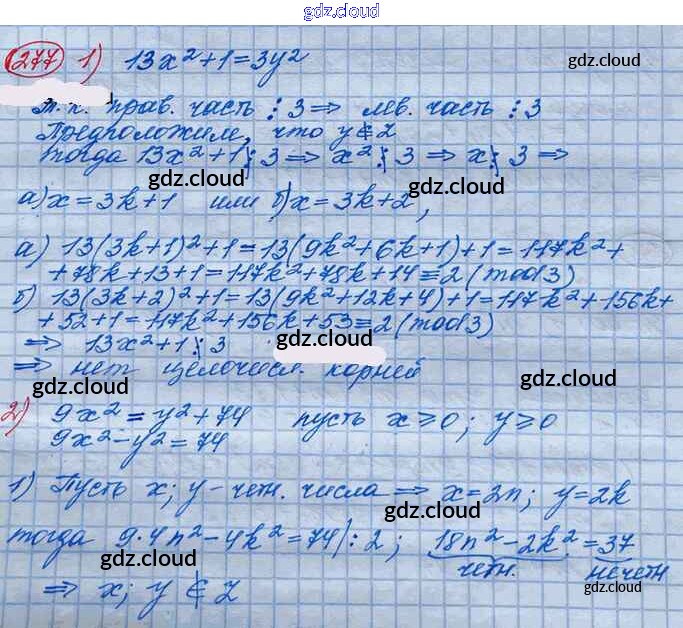 gdz.cloud
gdz.cloud
277 1) 13x² + 1 = 3y²
gdz.cloud
т.к. прав. часть ⋮ 3 ⇒ лев. часть ⋮ 3
Предположим, что y ∉ Z
тогда 13x² + 1 ⋮ 3 ⇒ x² ⋮̸ 3 ⇒ x ⋮̸ 3 ⇒
gdz.cloud gdz.cloud
а) x = 3k + 1 или б) x = 3k + 2,
а) 13(3k + 1)² + 1 = 13(9k² + 6k + 1) + 1 = 117k² +
+ 78k + 13 + 1 = 117k² + 78k + 14 ≡ 2 (mod 3)
б) 13(3k + 2)² + 1 = 13(9k² + 12k + 4) + 1 = 117k² + 156k +
+ 52 + 1 = 117k² + 156k + 53 ≡ 2 (mod 3)
⇒ 13x² + 1 ⋮̸ 3
gdz.cloud
⇒ нет целочисл. корней
gdz.cloud gdz.cloud
2) 9x² = y² + 74 пусть x ⩾ 0; y ⩾ 0
9x² − y² = 74
gdz.cloud
1) Пусть x; y – четн. числа ⇒ x = 2n; y = 2k
gdz.cloud
тогда 9·4n² − 4k² = 74 |: 2; 18n² − 2k² = 37
gdz.cloud четн. нечетн
⇒ x; y ∉ Z
gdz.cloud